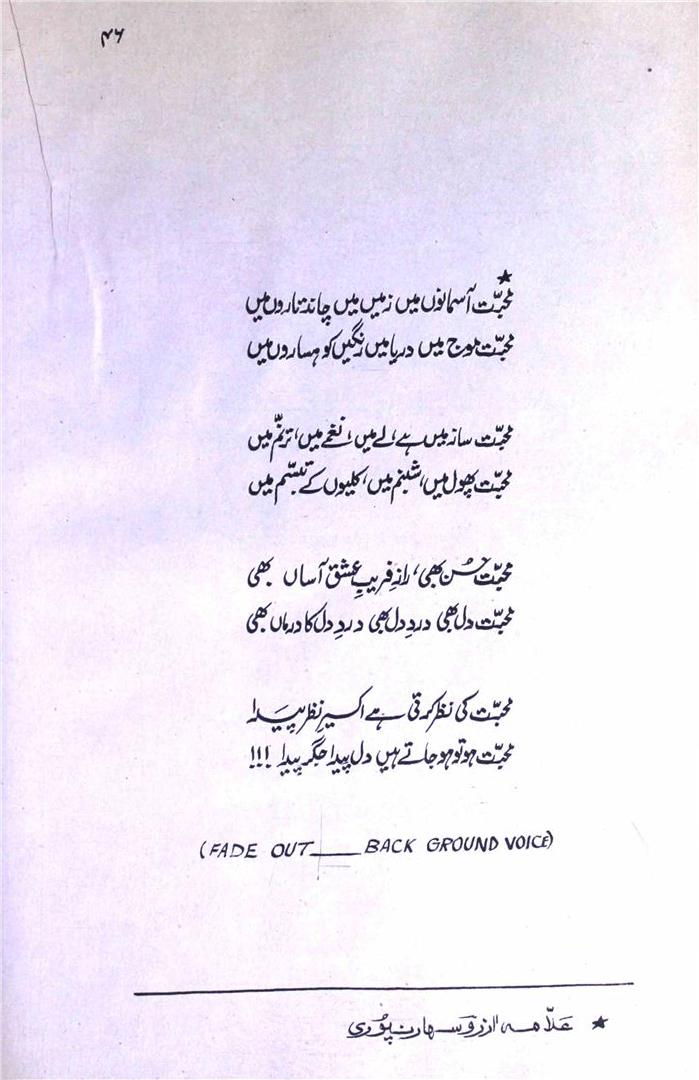 ۴۶
★
محبّت آسمانوں میں زمیں میں چاند تاروں میں
محبّت موج میں دریا میں رنگیں کوہساروں میں
محبّت ساز میں ہے، لے میں، نغمے میں، ترنّم میں
محبّت پھول میں، شبنم میں، کلیوں کے تبسّم میں
محبّت حُسن بھی، رازِ فریبِ عشق آساں بھی
محبّت دل بھی دردِ دل بھی دردِ دل کا درماں بھی
محبّت کی نظر کرتی ہے اکسیرِ نظر پیدا
محبّت ہو تو ہو جاتے ہیں دل پیدا جگر پیدا !!!
(FADE OUT ____ BACK GROUND VOICE)
★ علّامہ آرزو سہارنپوری